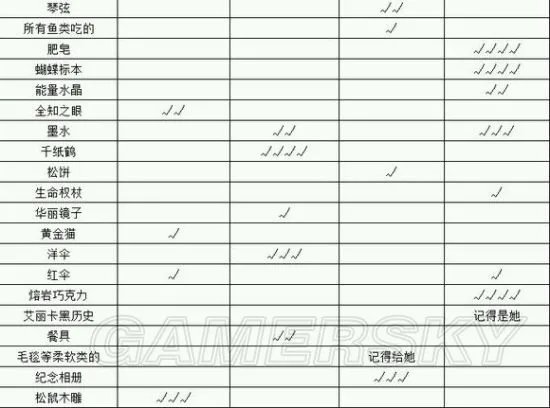 琴弦 √√
所有鱼类吃的 √
肥皂 √√√√
蝴蝶标本 √√√√
能量水晶 √√
全知之眼 √√
墨水 √√ √√√
千纸鹤 √√√√
松饼 √
生命权杖 √
华丽镜子 √
黄金猫 √
洋伞 √√√
红伞 √ √
熔岩巧克力 √√√√
艾丽卡黑历史 记得是她
餐具 √√
毛毯等柔软类的 记得给她
纪念相册 √√√
松鼠木雕 √√√
GAMERSKY